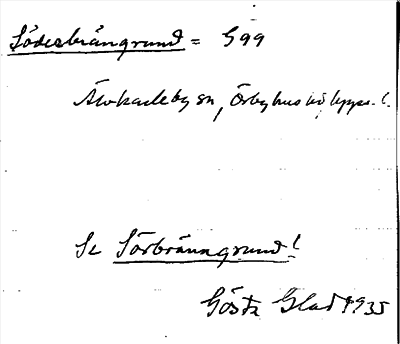 Södesbrångrund = S 99
Älvkarleby sn, Örbyhus hd, Upps. l.
Se Sörbränngrund!
Gösta Glad 1935